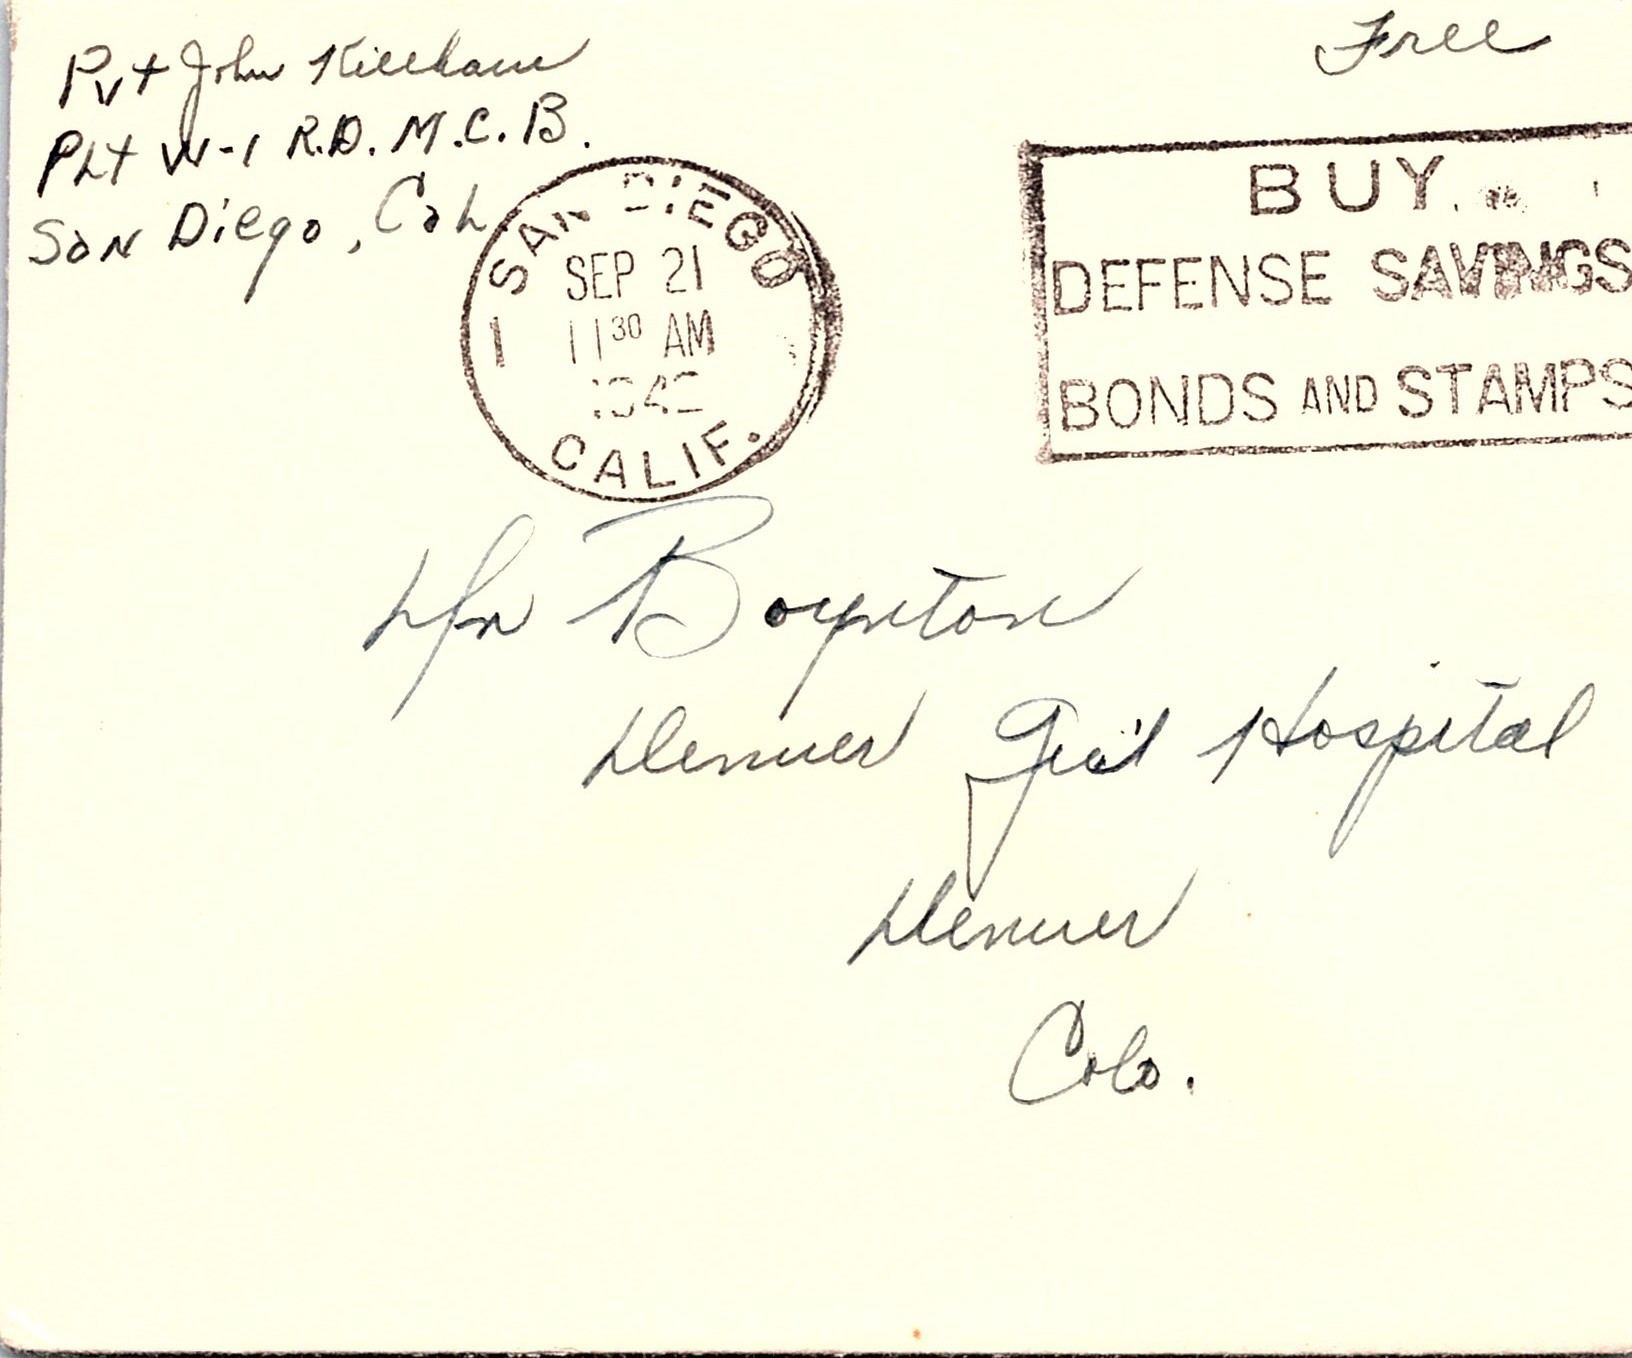 Pvt John
Plt W-1 R.D. M.C.B.
San Diego, Cal
Free
SAN DIEGO
SEP 21
1130 AM
1
1942
CALIF.
BUY
DEFENSE SAVINGS
BONDS AND STAMPS
Dr Boynton
Denver Gen'l Hospital
Denver
Colo.